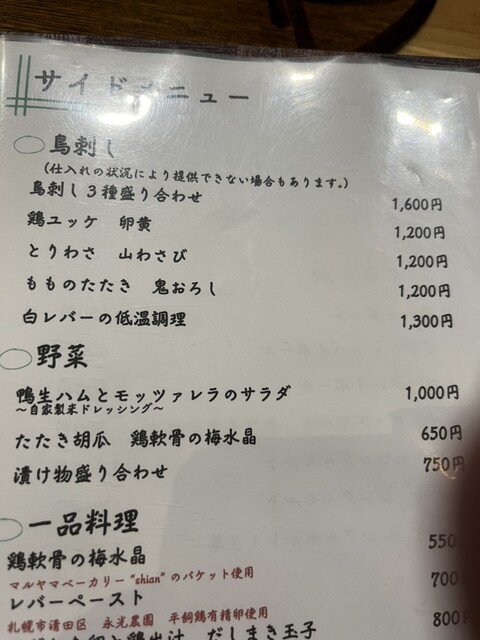 サイドメニュー
鳥刺し
(仕入れの状況により提供できない場合もあります。)
鳥刺し3種盛り合わせ 1,600円
鶏ユッケ 卵黄 1,200円
とりわさ 山わさび 1,200円
もものたたき 鬼おろし 1,200円
白レバーの低温調理 1,300円
野菜
鴨生ハムとモッツァレラのサラダ 1,000円
～自家製米ドレッシング～
たたき胡瓜 鶏軟骨の梅水晶 650円
漬け物盛り合わせ 750円
一品料理
鶏軟骨の梅水晶 550
マルヤマベーカリー"shian"のバケット使用
レバーペースト 700
札幌市清田区 永光農園 平飼鶏有精卵使用
と鶏出汁 だしまき玉子 800